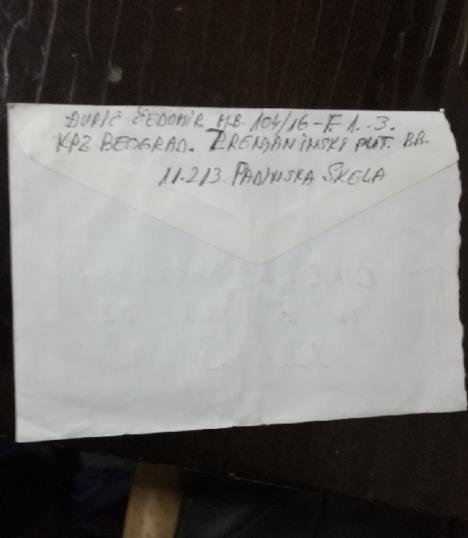 ĐURIĆ ČEDOMIR M.B. 104/16-F. 1. 3.
KPZ BEOGRAD. ZRENJANINSKI PUT. BB.
11.213. PADINSKA SKELA